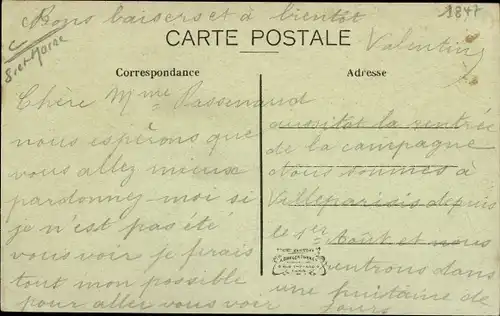 Bons baisers et à bientôt
Valentin
1847
S et Marne
CARTE POSTALE
Correspondance
Adresse
Chère Mme Passenaud
nous espérons que
vous allez mieux
pardonnez-moi si
je n'est pas été
vous voir je ferais
tout mon possible
pour aller vous voir
aussitot la rentrée
de la campagne
Nous sommes à
Villeparisis depuis
le 1er Août et nous
rentrons dans
une huitaine de
jours